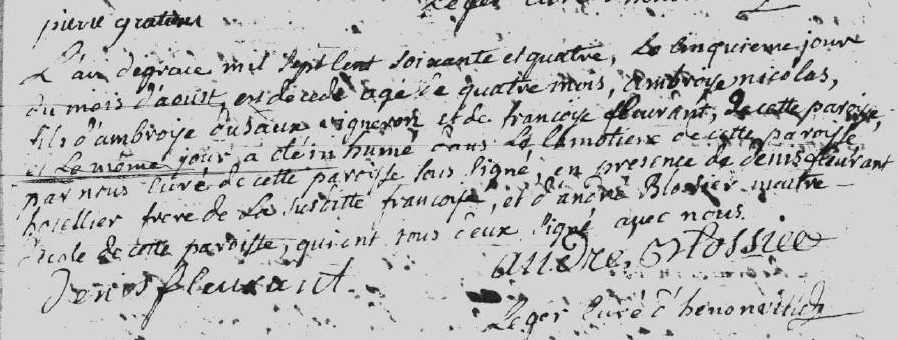 Leger curé
pierre gratien
L'an de grace mil sept cent soixante et quatre, le cinquieme jour
du mois d'aoust, est decedé agé de quatre mois, ambroise nicolas,
fils d'ambroise dusaux vigneron et de francoise fleurant, de cette paroisse,
et le même jour a eté inhumé dans le cimetiere de cette paroisse
par nous curé de cette paroisse sous signé, en presence de denis fleurant
hotellier frere de la susditte francoise, et d'andré Blossier maitre
d'ecole de cette paroisse, qui ont tous deux signé avec nous.
andre Blossier
Denis fleurant.
Leger curé d'henonville